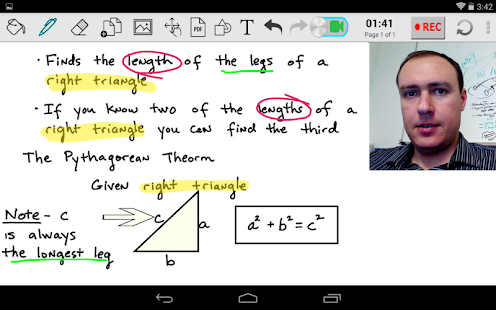 3:42
PDF
01:41
Page 1 of 1
REC
· Finds the length of the legs of a
right triangle
· If you know two of the lengths of a
right triangle you can find the third
The Pythagorean Theorm
Given right triangle
Note - c
is always
the longest leg
c
a
b
a² + b² = c²